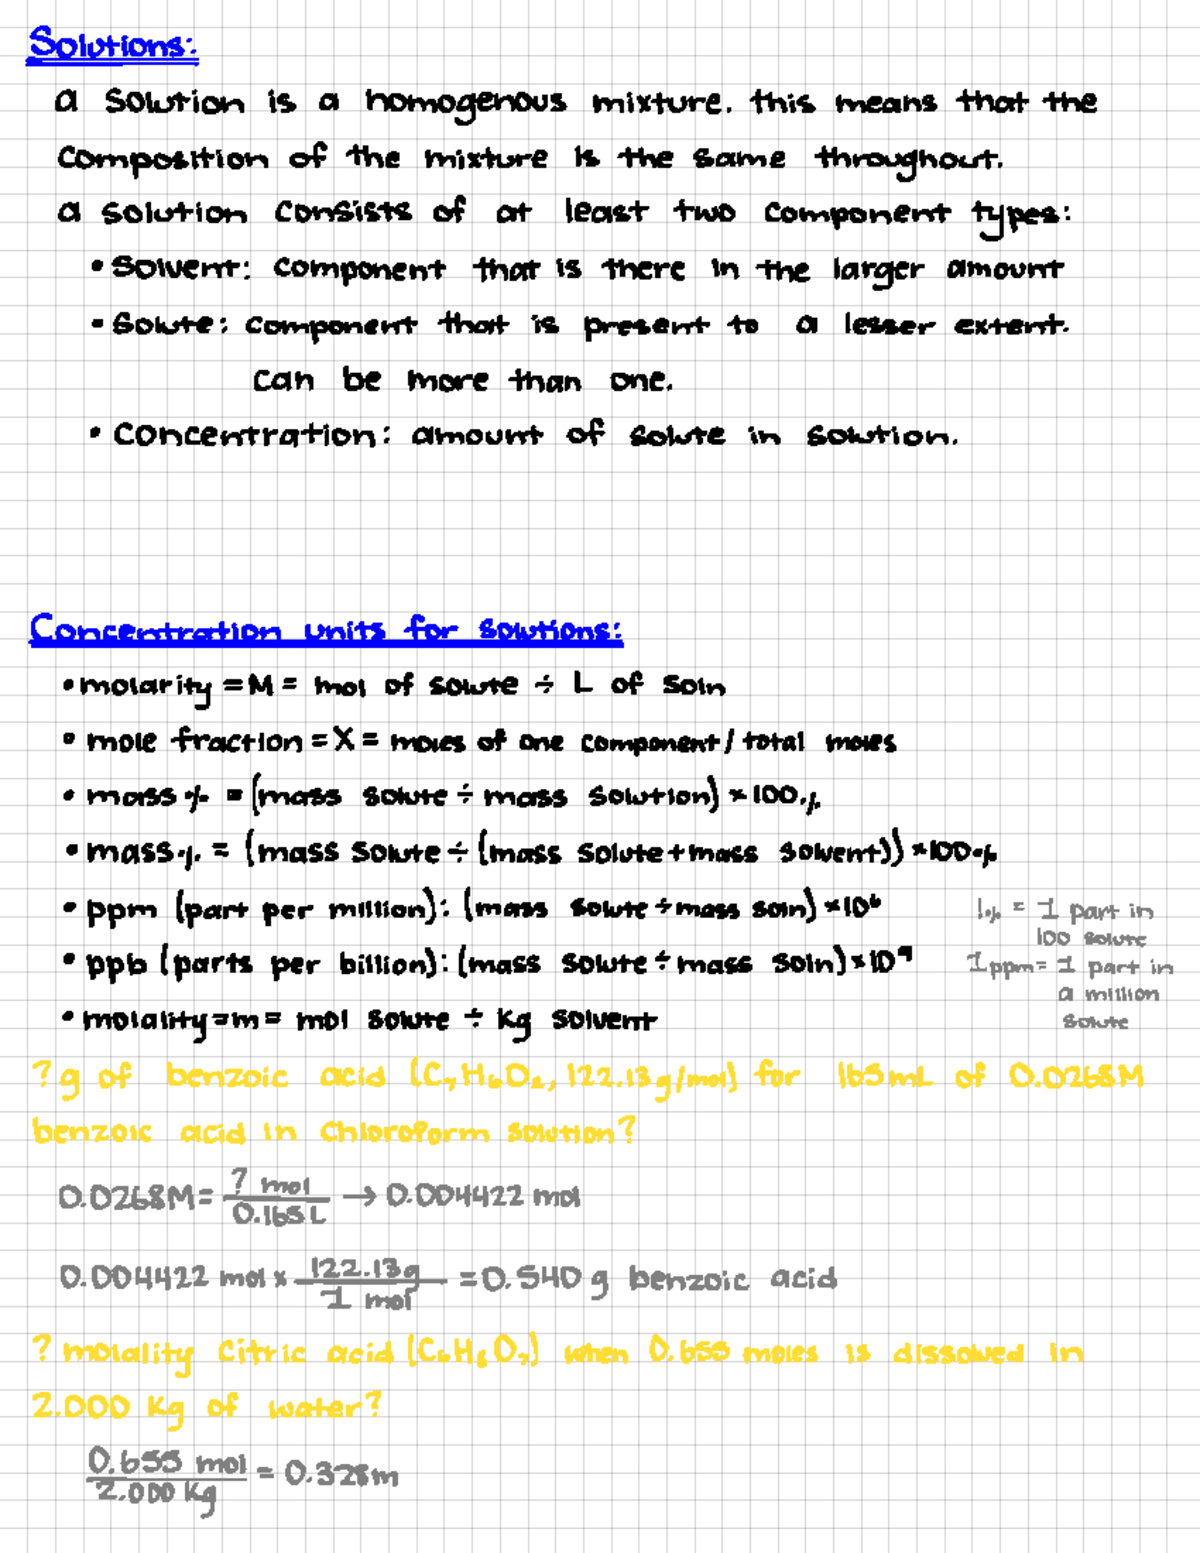 Solutions:
a solution is a homogenous mixture. this means that the
composition of the mixture is the same throughout.
a solution consists of at least two component types:
• solvent: component that is there in the larger amount
• solute: component that is present to a lesser extent.
can be more than one.
• concentration: amount of solute in solution.
Concentration units for solutions:
• molarity = M = mol of solute ÷ L of soln
• mole fraction = X = moles of one component / total moles
• mass % = (mass solute ÷ mass solution) × 100%
• mass % = (mass solute ÷ (mass solute + mass solvent)) × 100%
• ppm (part per million): (mass solute ÷ mass soln) × 10⁶
1% = 1 part in
100 solute
• ppb (parts per billion): (mass solute ÷ mass soln) × 10⁹
1ppm = 1 part in
a million
solute
• molality = m = mol solute ÷ kg solvent
? g of benzoic acid (C₇H₆O₂, 122.13 g/mol) for 165 mL of 0.0268M
benzoic acid in chloroform solution?
0.0268M = ? mol / 0.165 L → 0.004422 mol
0.004422 mol × 122.13 g / 1 mol = 0.540 g benzoic acid
? molality citric acid (C₆H₈O₇) when 0.655 moles is dissolved in
2.000 kg of water?
0.655 mol / 2.000 kg = 0.328m